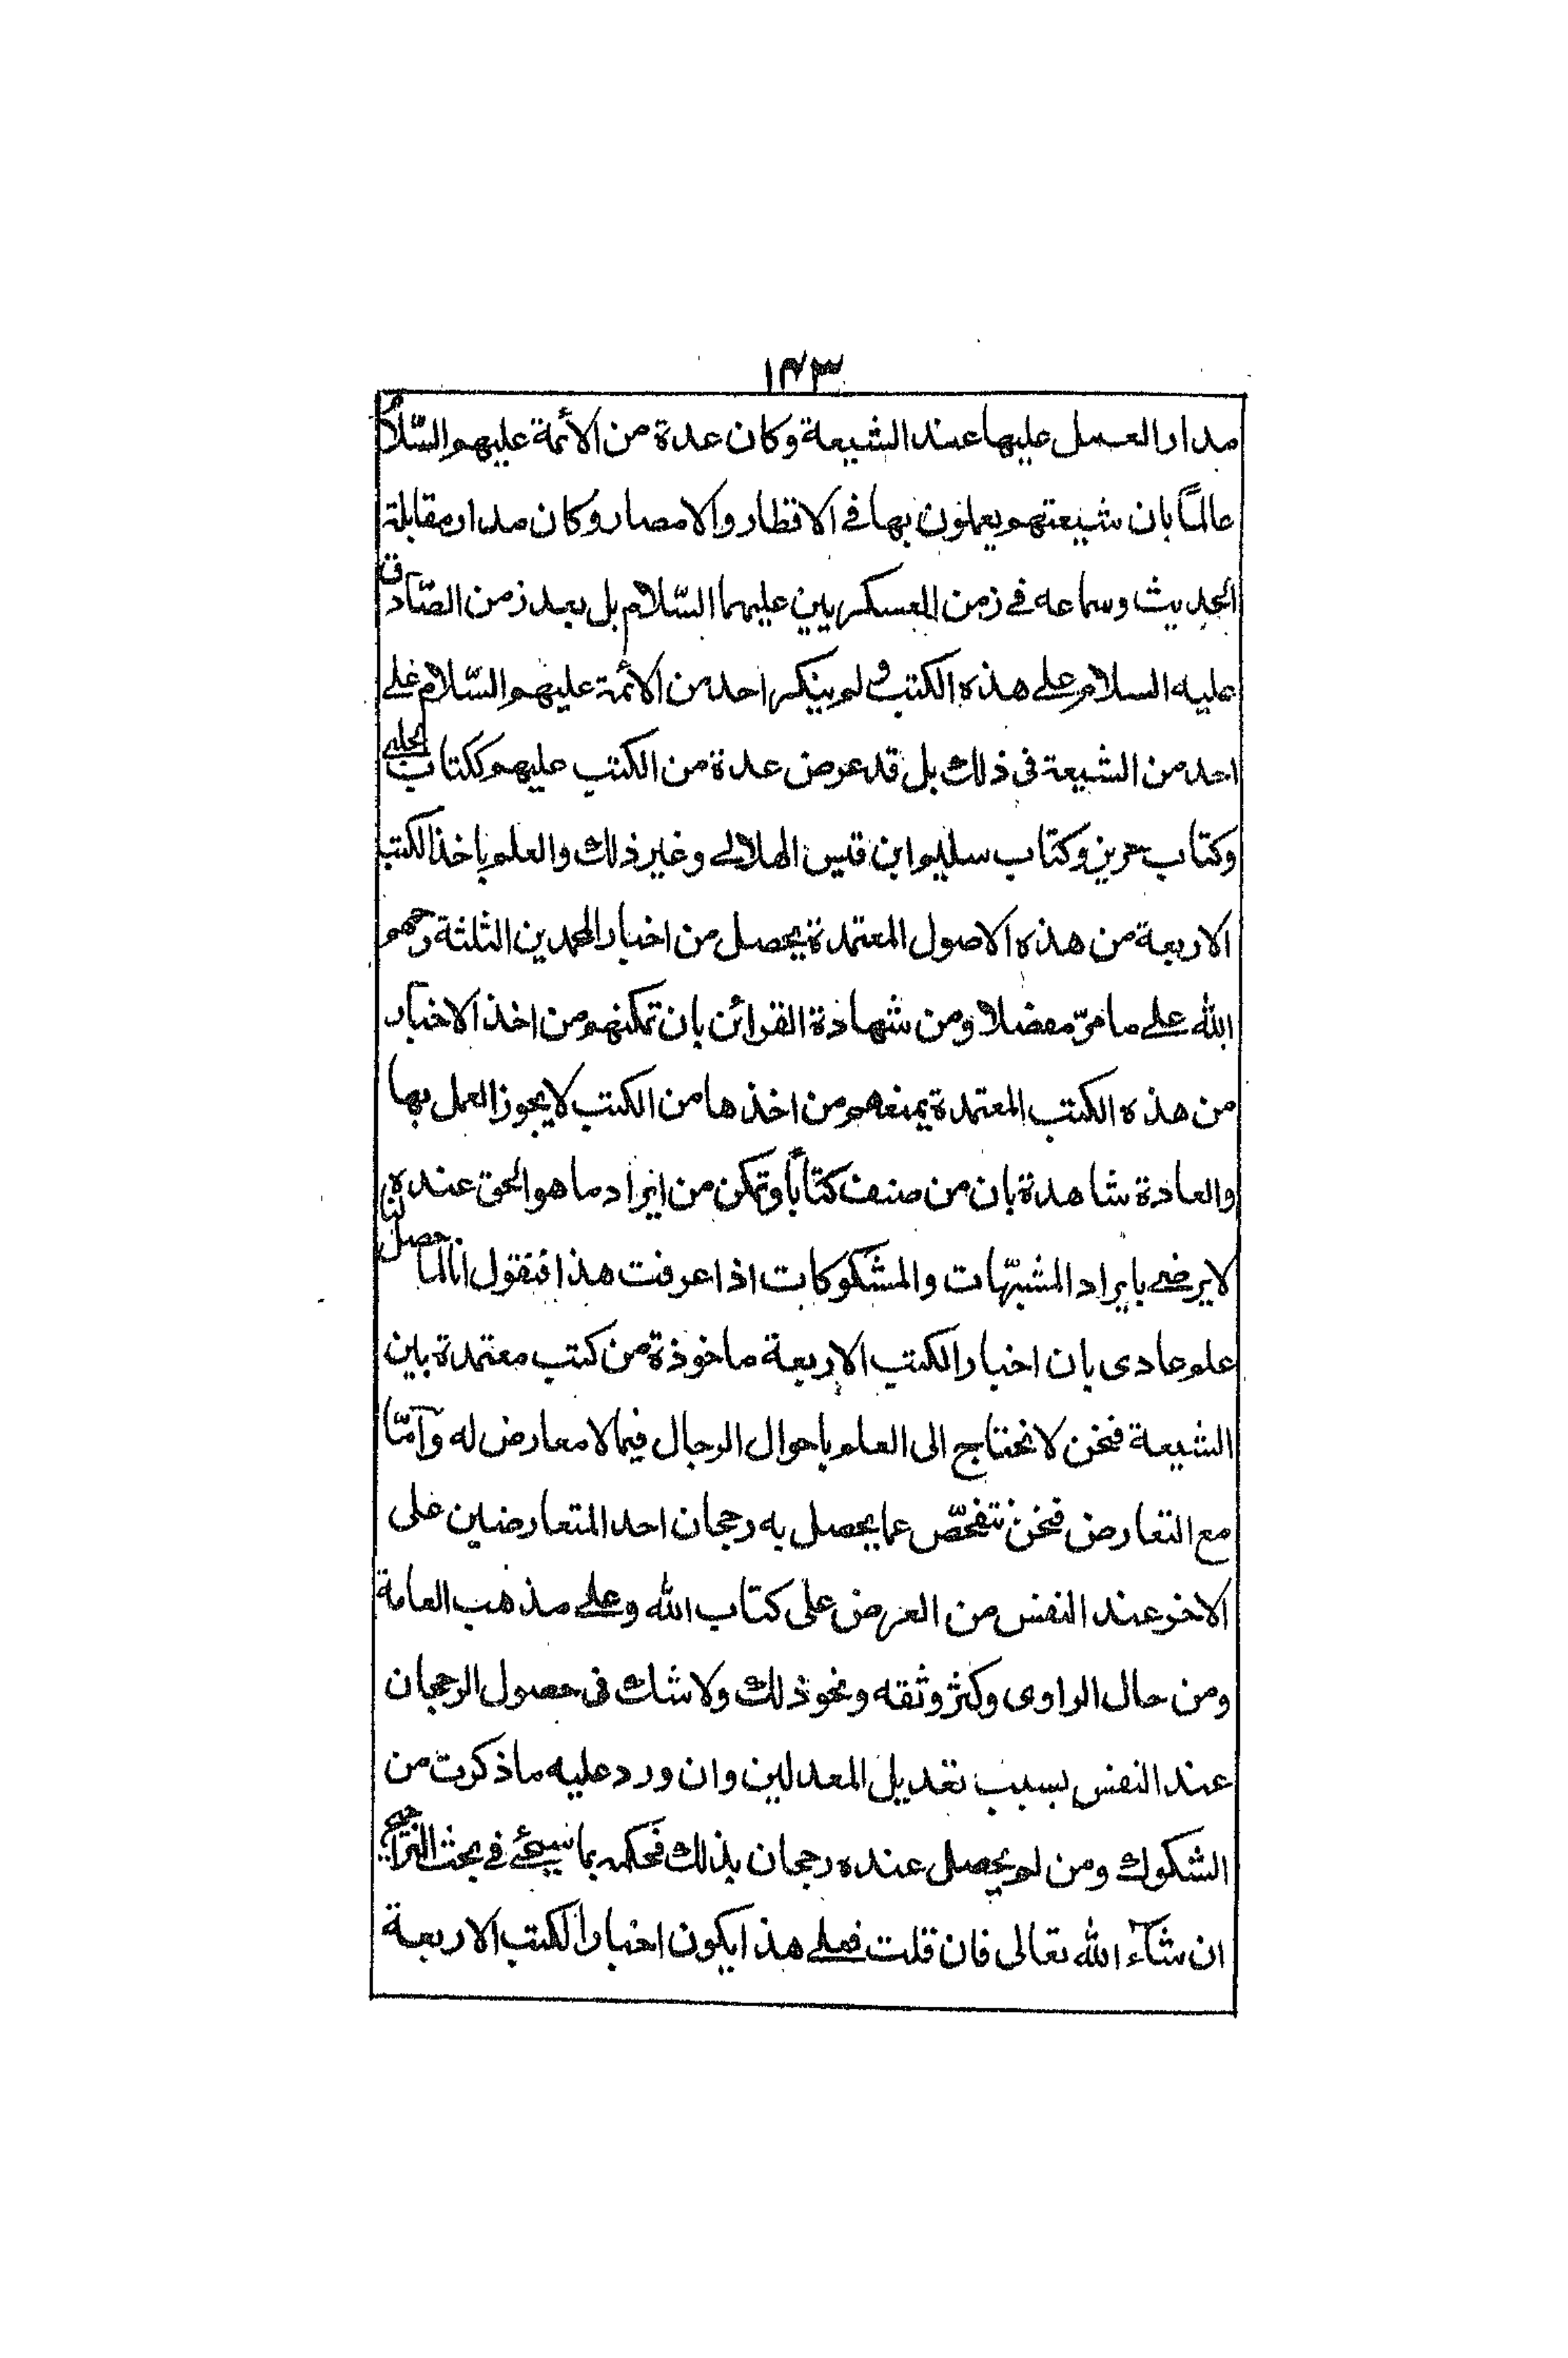 ١٢٣
مدار العمل عليها عند الشيعة وكان عدة من الأئمة عليهم السّلام
عالماً بان شيعتهم يعملون بها فى الاقطار والامصار وكان مدار مقابلة
الحديث وسماعه فى زمن العسكريين عليهما السّلام بل بعد زمن الصّادق
عليه السلام على هذه الكتب و لم ينكر احد من الأئمة عليهم السّلام على
احد من الشيعة فى ذلك بل قد عرض عدة من الكتب عليهم ككتاب الحلبى
وكتاب حريز وكتاب سليم ابن قيس الهلالى وغير ذلك والعلم باخذ الكتب
الاربعة من هذه الاصول المعتمدة يحصل من اخبار المحمدين الثلثة رحمهم
الله على ما مرّ مفصلا ومن شهادة القرائن بان تمكنهم من اخذ الاخبار
من هذه الكتب المعتمدة يمنعهم من اخذها من الكتب لا يجوز العمل بها
والعادة شاهدة بان من صنف كتاباً وتمكن من ايراد ما هو الحق عنده
لا يرضى بايراد المشبّهات والمشكوكات اذا عرفت هذا فنقول انا لما حصل لنا
علم عادى بان اخبار الكتب الاربعة ماخوذة من كتب معتمدة بين
الشيعة فنحن لا نحتاج الى العلم باحوال الرجال فيما لا معارض له وآمّا
مع التعارض فنحن نتفحّص عما يحصل به رجحان احد المتعارضين على
الاخر عند النفس من العرض على كتاب الله وعلى مذهب العامة
ومن حال الراوى وكثر وثقه ونحو ذلك ولا شك فى حصول الرجحان
عند النفس بسبب تعديل المعدلين وان ورد عليه ما ذكرت من
الشكوك ومن لم يحصل عنده رجحان بذلك فحكمه بما سيجئ فى بحث التراجيح
ان شآء الله تعالى فان قلت فعلى هذا يكون اخبار الكتب الاربعة